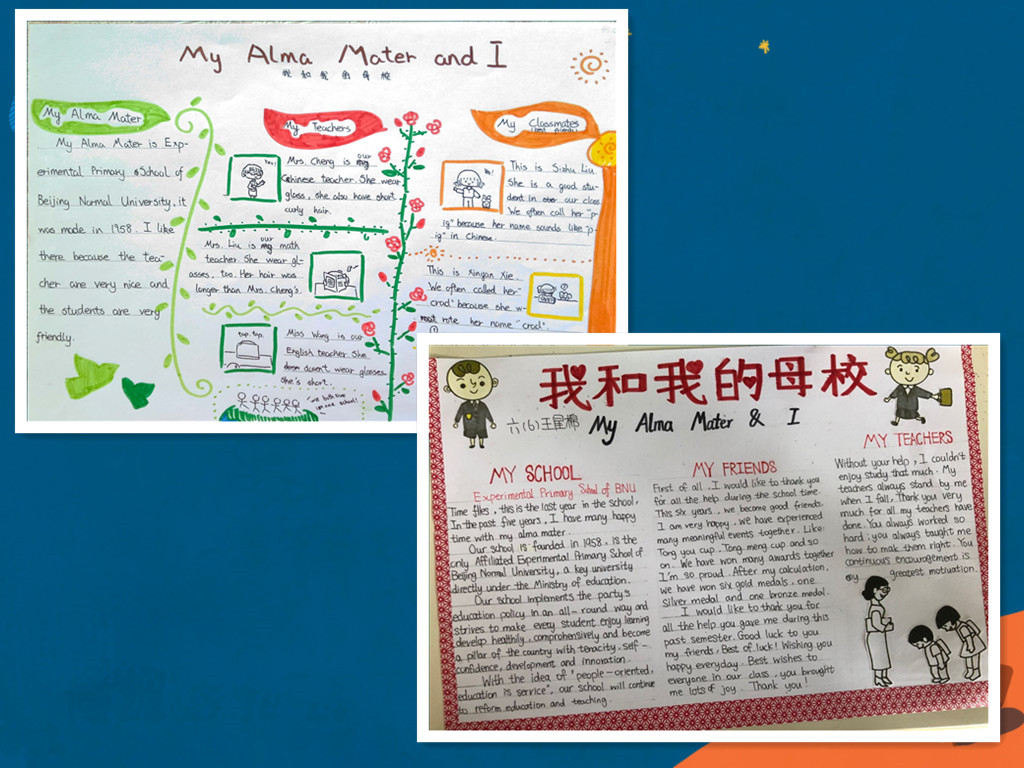 My Alma Mater and I
我和我的母校
My Alma Mater
My Alma Mater is Exp-
erimental Primary School of
Beijing Normal University, it
was made in 1958. I like
there because the tea-
cher are very nice and
the students are very
friendly.
My Teachers
Mrs. Cheng is our
Chinese teacher. She wear
glass, she also have short
curly hair.
Mrs. Liu is our math
teacher. She wear gl-
asses, too. Her hair was
longer than Mrs. Cheng's.
tap. tap.
Miss Wang is our
English teacher. She
doesn't wear glasses.
She's short.
My Classmates
(best friends)
This is Sizhu Liu
She is a good stu-
dent in our class
We often call her "p-
ig" because her name sounds like "p-
ig" in Chinese.
This is Xingan Xie
We often called her
"crad" because she w-
rote her name "crad".
我和我的母校
六(6)王
My Alma Mater & I
MY SCHOOL
Experimental Primary School of BNU
Time flies, this is the last year in the school,
In the past five years, I have many happy
time with my alma mater.
Our school is founded in 1958, is the
only Affiliated Experimental Primary School of
Beijing Normal University, a key university
directly under the Ministry of education.
Our school implements the party's
education policy in an all-round way and
strives to make every student enjoy learning
develop healthily, comprehensively and become
a pillar of the country with tenacity, self-
confidence, development and innovation.
With the idea of "people-oriented,
education is service", our school will continue
to reform education and teaching.
MY FRIENDS
First of all, I would like to thank you
for all the help during the school time.
This six years, we become good friends.
I am very happy, we have experienced
many meaningful events together. Like:
Tong you cup. Tong meng cup and so
on. We have won many awards together
I'm so proud. After my calculation,
we have won six gold medals, one
silver medal and one bronze medal.
I would like to thank you for
all the help you gave me during this
past semester. Good luck to you
my friends, Best of luck! Wishing you
happy everyday. Best wishes to
everyone in our class, you brought
me lots of joy. Thank you!
MY TEACHERS
Without your help, I couldn't
enjoy study that much. My
teachers always stand by me
when I fall, Thank you very
much for all my teachers have
done. You always worked so
hard; you always taught me
how to mak them right. You
continuous encouragement is
my greatest motivation.